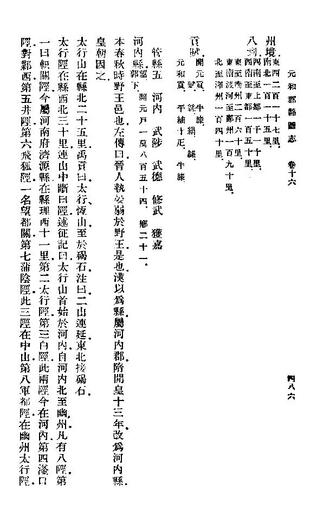 元和郡縣圖志 卷十六
四八六
州境東西二百一十七里
南北一百一十五里
八到西南至上都一千里
西南至東都一百五十里
東至衛州二百六十里
東南渡河至鄭州一百九十里
北至澤州一百四十里
貢賦開元貢牛膝
元和貢平紬十疋牛膝
管縣五河內 武涉 武德 修武 獲嘉
河內縣望開元戶一萬八百五十四鄉二十一
本春秋時野王邑也左傳曰晉人執晏弱於野王是也漢以爲縣屬河內郡隋開皇十三年改爲河內縣
皇朝因之
太行山在縣北二十五里禹貢曰太行恆山至於碣石注曰二山連延東北接碣石
太行陘在縣西北三十里連山中斷曰陘述征記曰太行山首始於河內自河內北至幽州凡有八陘第
一曰軹關陘今屬河南府濟源縣在縣理西十一里第二太行陘第三白陘此兩陘今在河內第四滏口
陘對鄴西第五井陘第六飛狐陘一名望都關第七蒲陰陘此三陘在中山第八軍都陘在幽州太行陘